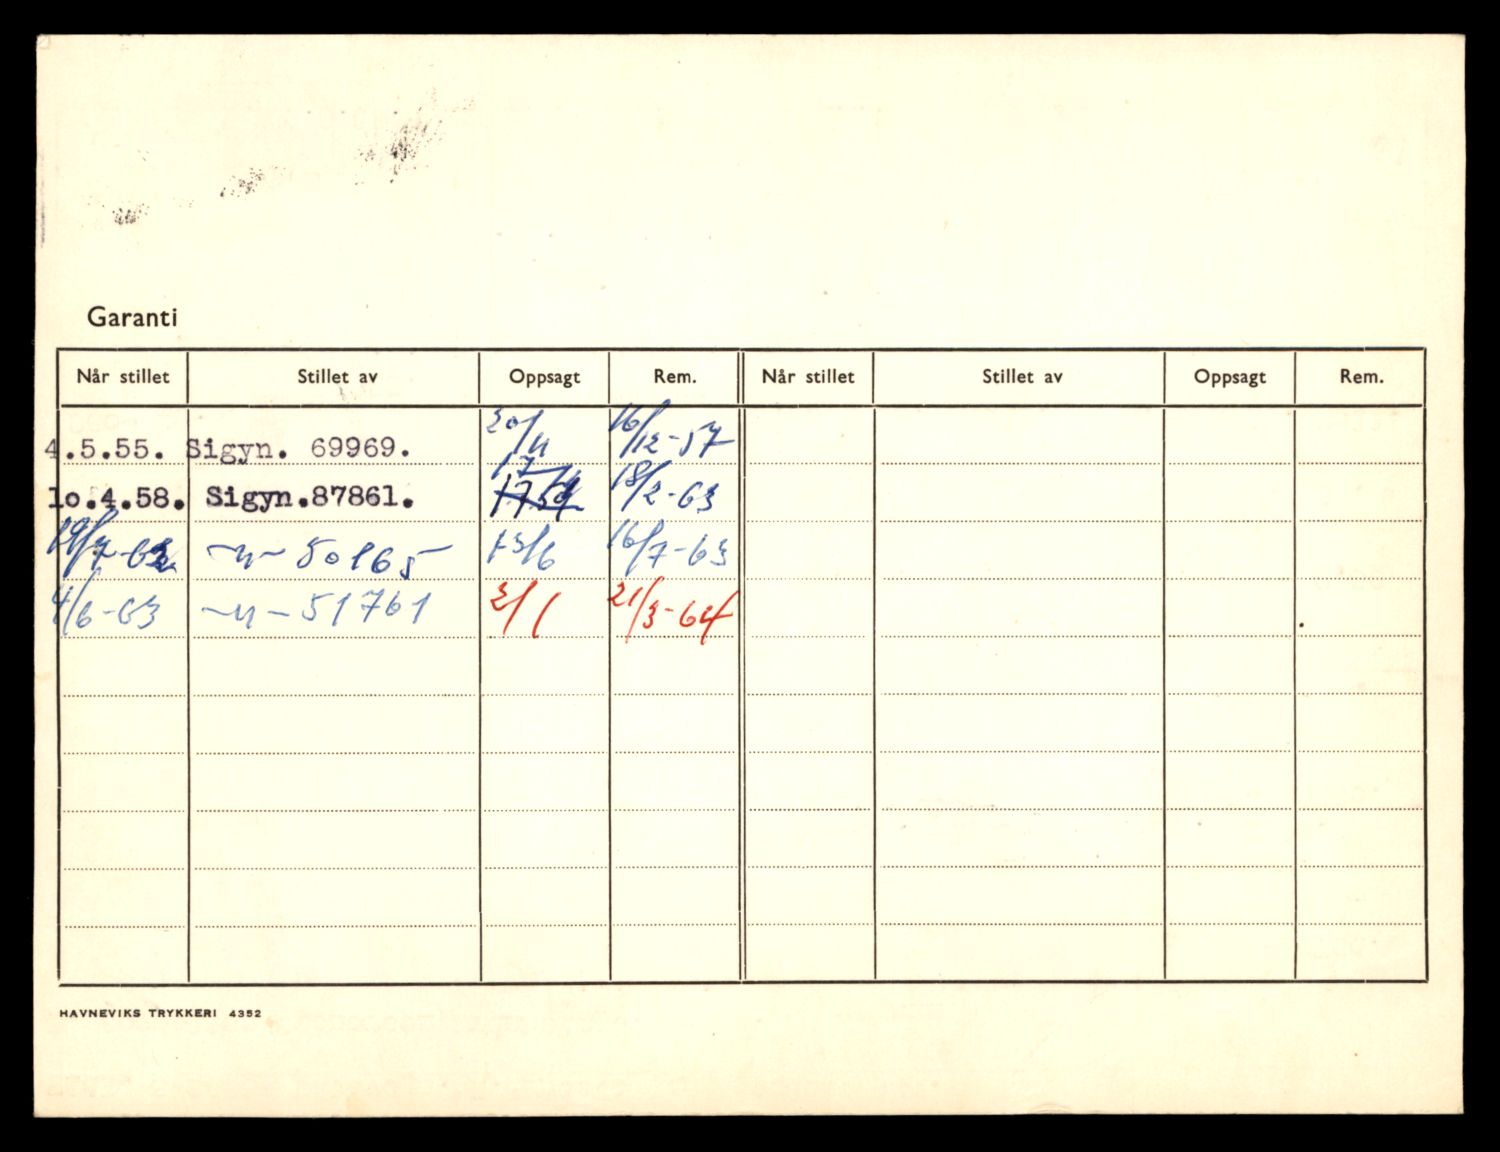 Garanti
Når stillet Stillet av Oppsagt Rem. Når stillet Stillet av Oppsagt Rem.
4.5.55. Sigyn. 69969. 20/11 16/12-57
lo.4.58. Sigyn.87861. 18/2-63
-"- 50165 13/6 16/7-63
4/6-63 -"- 51761 2/1 21/3-64
HAVNEVIKS TRYKKERI 4352